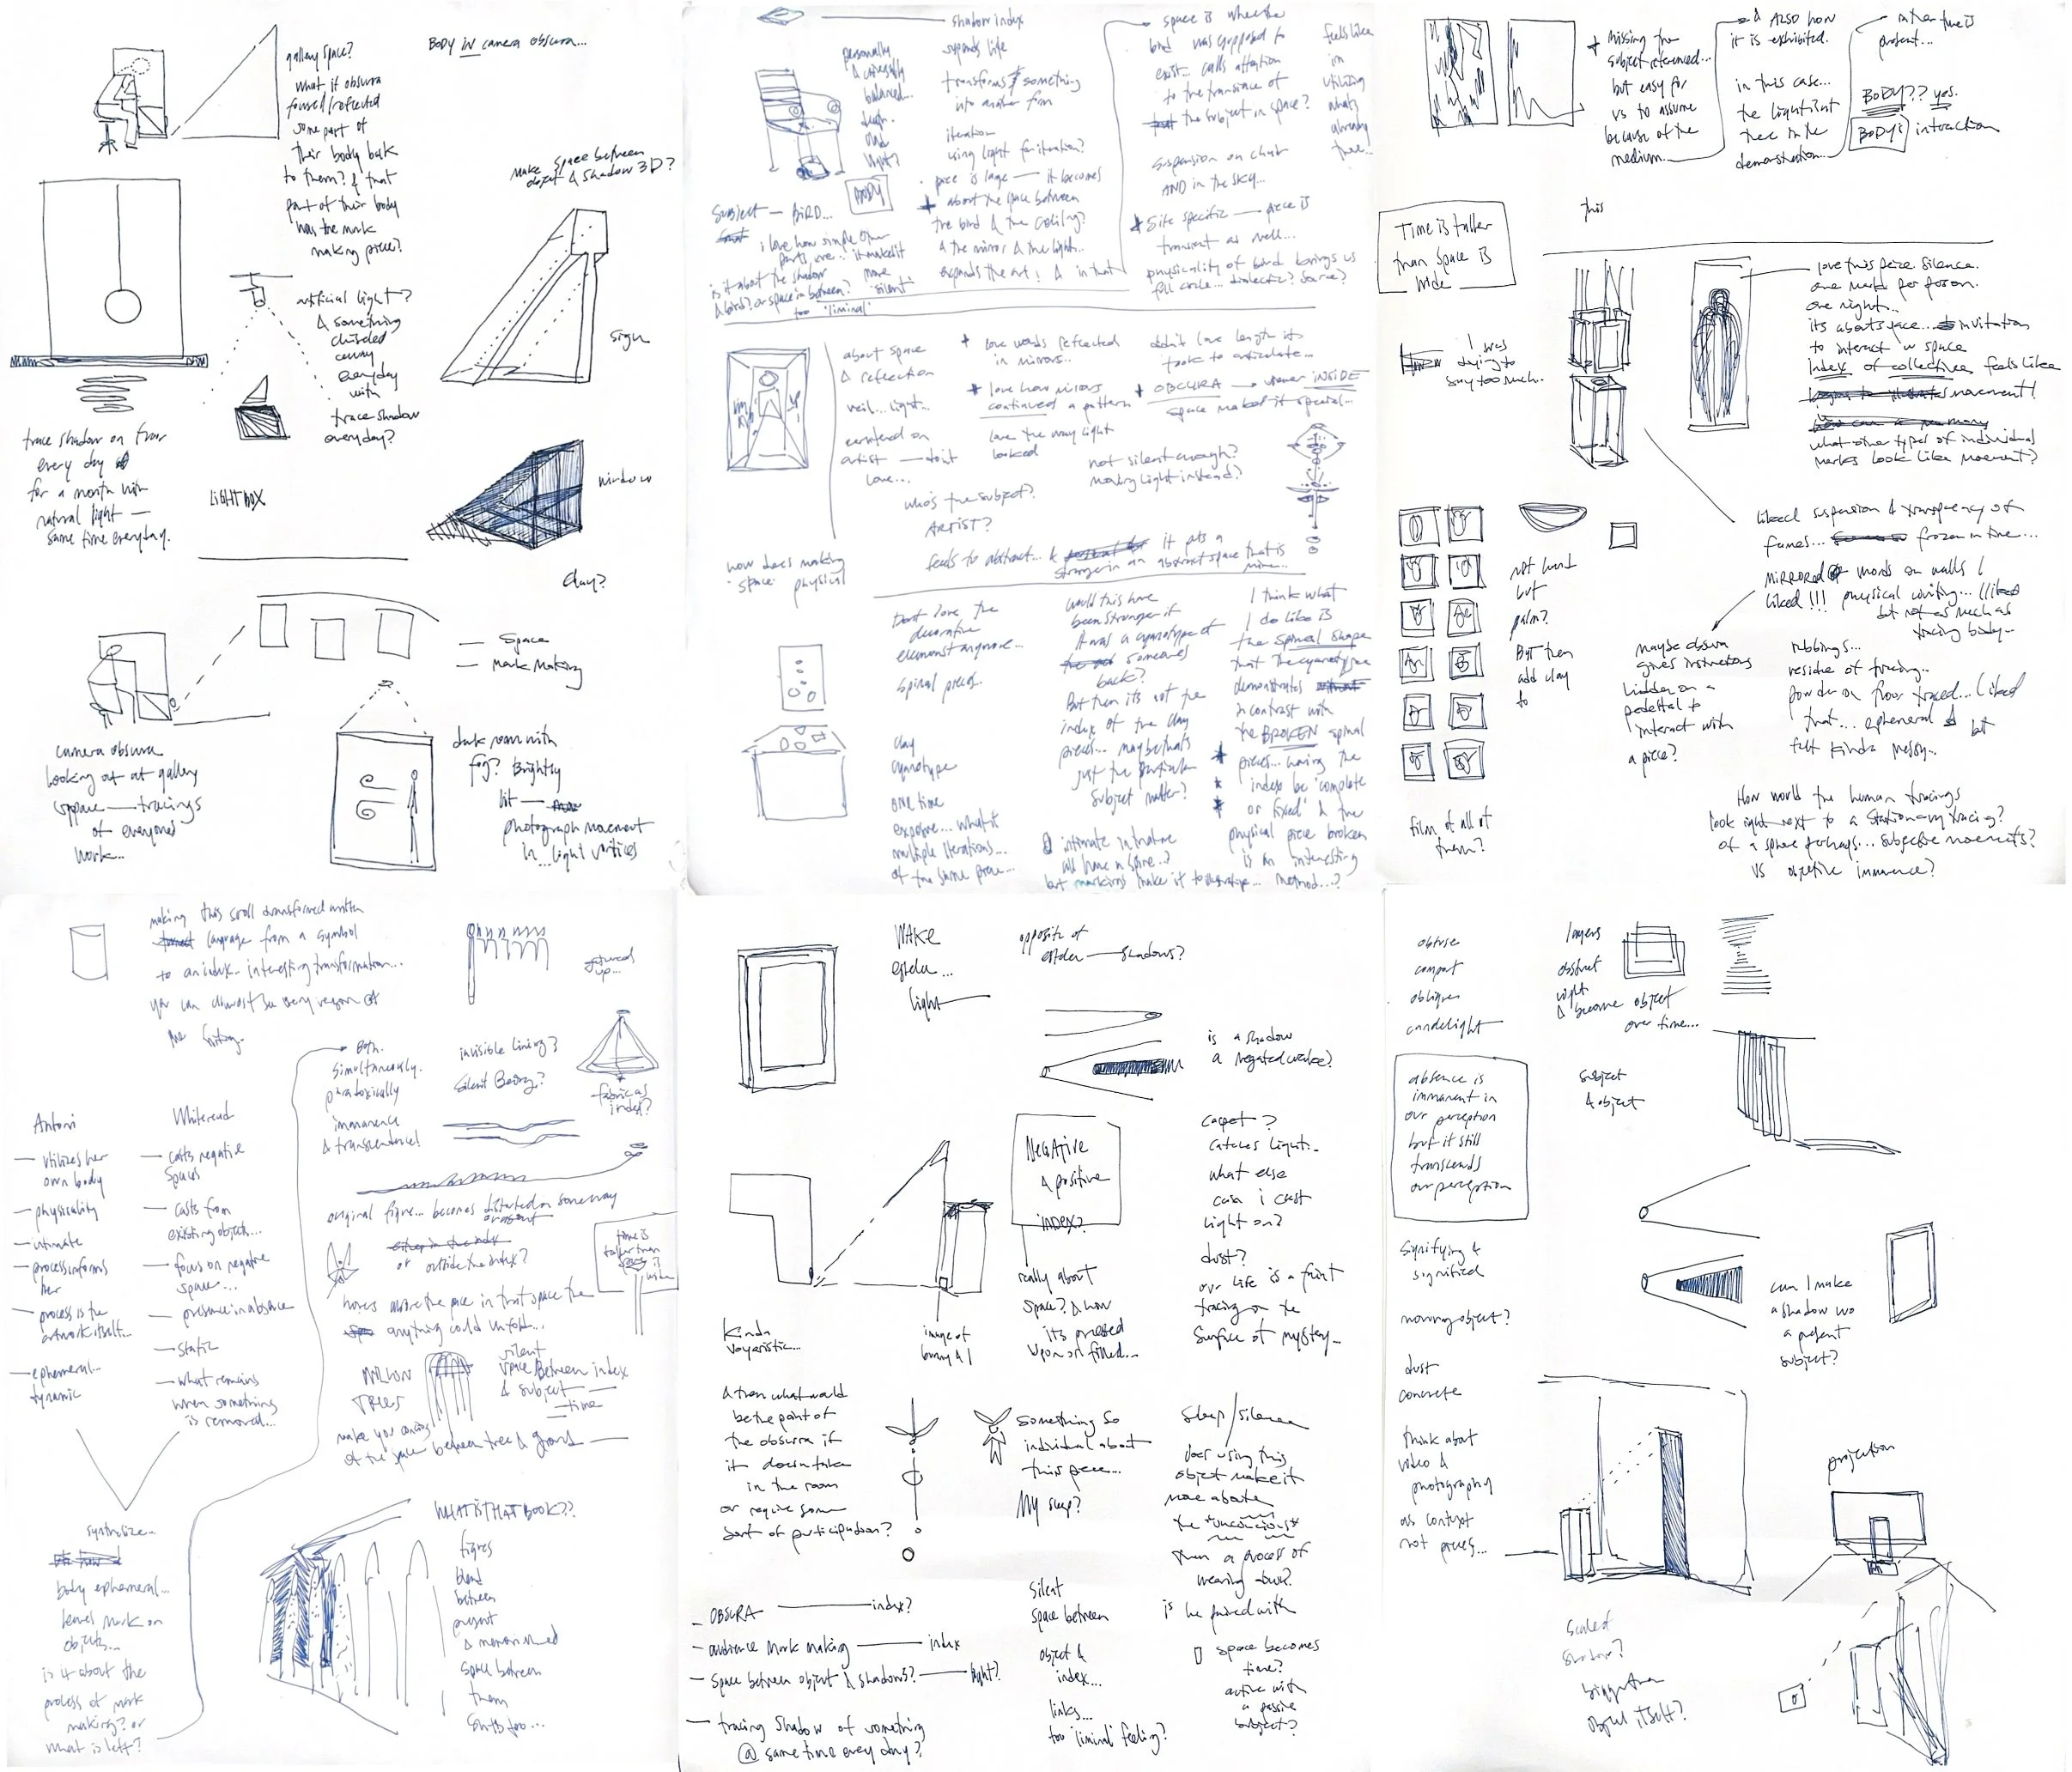 gallery space?
what if obscura
focused/reflected
some part of
their body back
to them? & that
part of their body
was the mark
making piece?
BODY IN camera obscura...
Make space between
object & shadow 3D?
artificial light?
& something
chiseled
away
everyday
with
trace shadow
everyday?
sign
trace shadow on floor
every day
for a month with
natural light —
same time everyday.
LIGHTBOX
window
clay?
— Space
— Mark Making
camera obscura
looking out at gallery
space — tracings
of everyones
work...
dark room with
fog? Brightly
lit —
photograph movement
in... light vortices
shadow index
expands life
transforms something
into another form
iteration
using light for iteration?
piece is large — it becomes
about the space between
the bird & the ceiling?
& the mirror & the light...
expands the art! & in that
personally
& universally
balanced...
BODY
Subject — BIRD...
i love how simple other
parts are... it makes it
more
"silent"
is it about the shadow
& bird? or space in between?
too 'liminal'
space is where the
bird was supposed to
exist... calls attention
to the transience of
the subject in space?
suspension on chair
AND in the sky...
Site specific — piece is
transient as well...
physicality of bird brings us
full circle... dialectic? source?
feels like
im
utilizing
whats
already
there...
about space
& reflection
veil... light...
centered on
artist — dont
love...
+ love words reflected
in mirrors...
+ love how mirrors
continued a pattern
love the way light
looked
didn't love length it
took to articulate...
+ OBSCURA → viewer INSIDE
space makes it special...
not silent enough?
moving light instead?
who's the subject?
ARTIST?
feels too abstract... & it puts a
stranger in an abstract space that is
mine...
how does making
space physical
Dont love the
decorative
element anymore...
spinal pieces...
clay
cyanotype
one time
exposure... what if
multiple iterations...
of the same piece...
would this have
been stronger if
it was a cyanotype of
someones
back?
But then its not the
index of the clay
pieces... maybe thats
just the
subject matter?
intimate in nature
all have a spine..?
but markings make it
method...?
I think what
I do like is
the spinal shape
that the cyanotype
demonstrates
in contrast with
the BROKEN spinal
pieces... having the
index be 'complete
or fixed' & the
physical piece broken
is an interesting
+ missing the
subject referenced...
but easy for
us to assume
because of the
medium...
& ALSO how
it is exhibited.
in this case...
the light lit
tree in the
demonstration...
rather tree is
present...
BODY?? yes.
BODY'S interaction
Time is taller
than Space is
wide
this
I was
trying to
say too much.
love this piece. Silence.
one mark per person.
one night...
its about space... invitation
to interact w space
Index of collectives feels like
movement!
what other types of individual
marks look like movement?
liked suspension & transparency of
frames... frozen in time...
MIRRORED words on walls I
liked!!! physical writing... (liked
but not as much as
tracing body...
not hand
but
palm?
But then
add clay
to
film of all of
them?
maybe obscura
gives instructions
hidden on a
pedestal to
interact with
a piece?
rubbings...
residue of tracing...
powder on floor traced... liked
that... ephemeral & but
felt kinda messy...
How would the human tracings
look right next to a stationary tracing?
of a sphere perhaps... subjective movements?
vs objective immanence?
making this scroll transformed written
language from a symbol
to an index... interesting transformation...
you can almost
gathered
up...
Both.
simultaneously.
paradoxically
immanence
& transcendence!
invisible lining?
Silent Being?
fabric as
index?
Antoni
— utilizes her
own body
— physicality
— intimate
— process informs
her
— process is the
artwork itself...
— ephemeral...
dynamic
Whiteread
— casts negative
spaces
— casts from
existing objects...
— focus on negative
space...
— presence in absence
— static
— what remains
when something
is removal...
original figure... becomes distorted in some way
or absent
either in the index
or outside the index?
time is
taller than
space is
wide
hovers above the piece in that space the
anything could unfold...
MILLION
TREES
silent
space between index
& subject —
— time
make you conscious
of the space between tree & ground —
synthesize...
body ephemeral...
leaves mark on
objects...
is it about the
process of mark
making? or
what is left?
WHAT IS THAT BOOK??
figures
blend
between
present
& memorialized
space between
them
shifts too...
MAKE
estela...
light
opposite of
estela — shadows?
is a shadow
a negated wake?
Negative
& positive
index?
really about
space? & how
its pressed
upon or filled...
carpet?
catches light...
what else
can i cast
light on?
dust?
our life is a faint
tracing on the
surface of mystery...
Kinda
voyeristic...
image of
bunny & I
& then what would
be the point of
the obscura if
it doesn take
in the room
or require some
sort of participation?
something so
individual about
this piece...
My sleep?
Sleep/silence
does using this
object make it
more about
the *unconcious*
than a process of
wearing away?
is he paired with
— OBSCURA — index?
— audience mark making — index
— space between object & shadows? — light?
— tracing shadow of something
@ same time every day?
Silent
space between
object &
index...
links...
too 'liminal' feeling?
space becomes
time?
active with
a passive
subject?
obtuse
comport
oblique
candelight
layers
obstruct
light
& become object
over time...
absence is
immanent in
our perception
but it still
transcends
our perception
subject
& object
Signifying &
signified
moving object?
dust
concrete
can I make
a shadow wo
a present
subject?
think about
video &
photography
as context
not pieces...
projection
scaled
shadow?
bigger than
object itself?